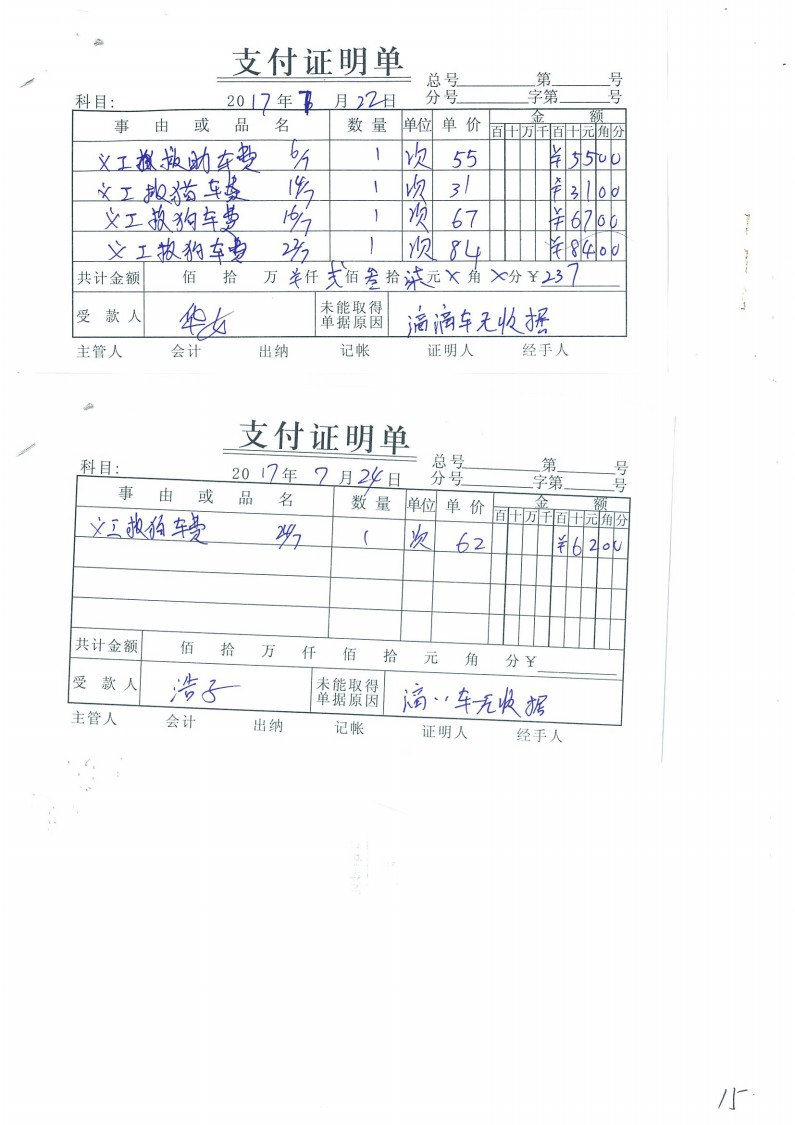 支付证明单
总号 第 号
科目: 2017年7月22日 分号 字第 号
事由或品名 数量 单位 单价 金额
百十万千百十元角分
义工救助车费 6/7 1 次 55 ¥5500
义工救猫车费 14/7 1 次 31 ¥3100
义工救狗车费 16/7 1 次 67 ¥6700
义工救狗车费 22/7 1 次 84 ¥8400
共计金额 佰 拾 万 ¥仟 弍佰 叁拾 柒元 X角 X分 ¥237
受款人 华女 未能取得单据原因 滴滴车无收据
主管人 会计 出纳 记帐 证明人 经手人
支付证明单
总号 第 号
科目: 2017年7月24日 分号 字第 号
事由或品名 数量 单位 单价 金额
百十万千百十元角分
义工救狗车费 24/7 1 次 62 ¥6200
共计金额 佰 拾 万 仟 佰 拾 元 角 分¥
受款人 浩子 未能取得单据原因 滴〃车无收据
主管人 会计 出纳 记帐 证明人 经手人
15